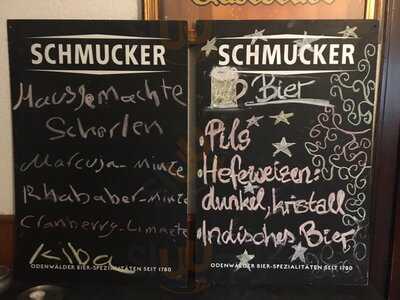 SCHMUCKER
Hausgemachte
Schorlen
Marcuja-Minze
Rhababer-Minze
Cranberry-Limnete
Kiba
ODENWÄLDER BIER-SPEZIALITÄTEN SEIT 1780
SCHMUCKER
Bier
·Pils
·Hefeweisen:
dunkel, kristall
·Indisches Bier
ODENWÄLDER BIER-SPEZIALITÄTEN SEIT 1780